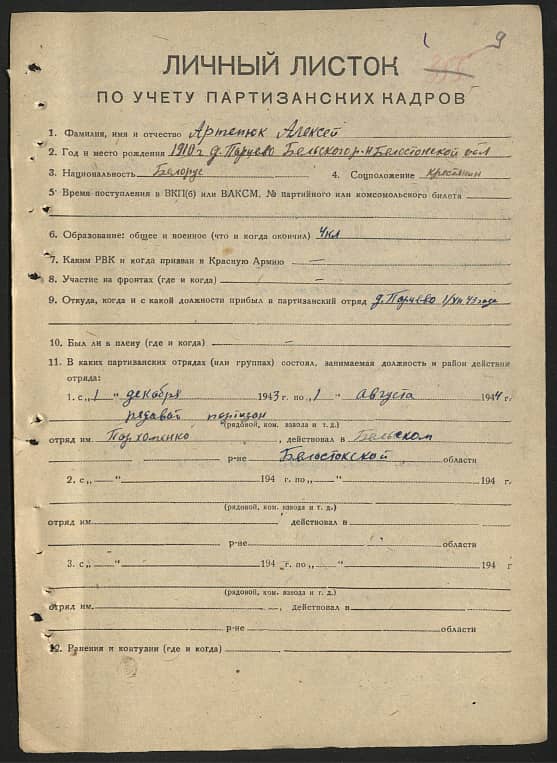 9
355
ЛИЧНЫЙ ЛИСТОК
ПО УЧЕТУ ПАРТИЗАНСКИХ КАДРОВ
1. Фамилия, имя и отчество Артепюк Алексей
2. Год и место рождения 1910 г д. Парцево Бельского р-н Белостокской обл
3. Национальность Белорус 4. Соцположение крестянин
5. Время поступления в ВКП(б) или ВЛКСМ, № партийного или комсомольского билета
6. Образование: общее и военное (что и когда окончил) 4 кл
7. Каким РВК и когда призван в Красную Армию —
8. Участие на фронтах (где и когда) —
9. Откуда, когда и с какой должности прибыл в партизанский отряд д. Парцево 1/XII 43 года
10. Был ли в плену (где и когда) —
11. В каких партизанских отрядах (или группах) состоял, занимаемая должность и район действия
отряда:
1. с „ 1 " декабря 1943 г. по „ 1 " августа 1944 г.
рядавой партизан
(рядовой, ком. взвода и т. д.)
отряд им. Пархоменко, действовал в Бельском
р-не Белостокской области
2. с „ " 194 г. по „ " 194 г.
(рядовой, ком. взвода и т. д.)
отряд им. , действовал в
р-не области
3. с „ " 194 г. по „ " 194 г
(рядовой, ком. взвода и т. д.)
отряд им. , действовал в
р-не области
12. Ранения и контузии (где и когда)